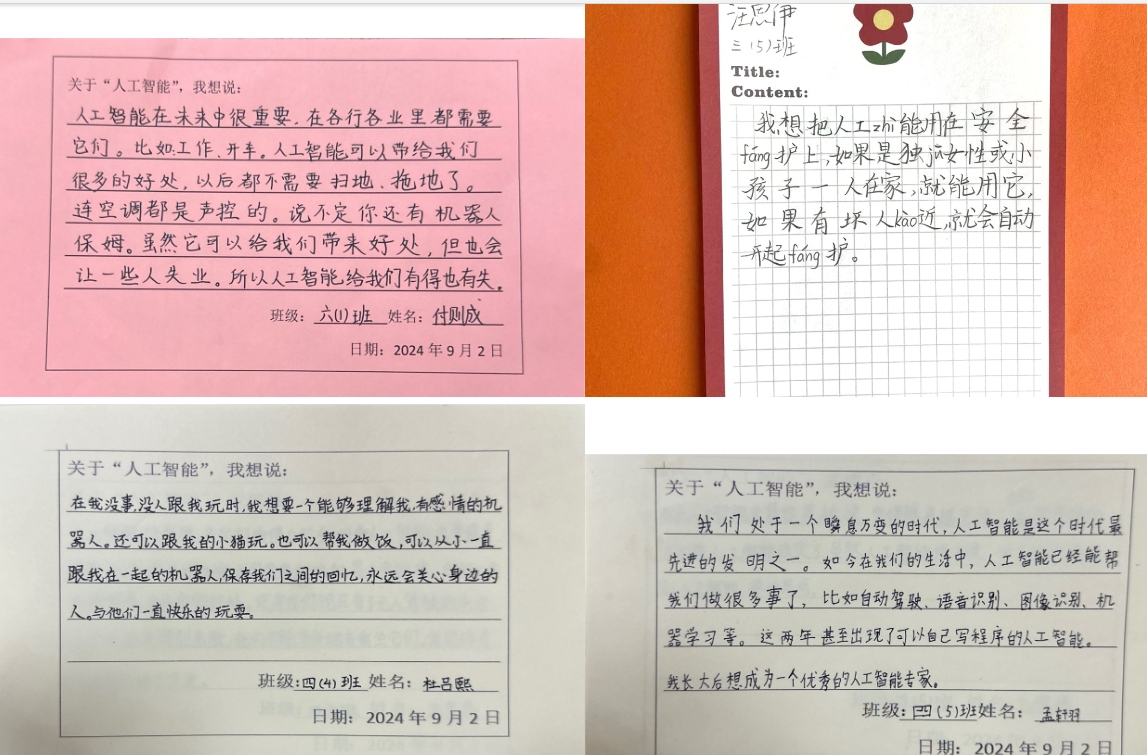 关于“人工智能”，我想说:
人工智能在未来中很重要.在各行各业里都需要
它们。比如:工作、开车。人工智能可以带给我们
很多的好处，以后都不需要扫地、拖地了。
连空调都是声控的。说不定你还有机器人
保姆。虽然它可以给我们带来好处，但也会
让一些人失业。所以人工智能给我们有得也有失。
班级: 六(1)班 姓名: 付则成
日期: 2024年9月2日
汪思伊
三（5）班
Title:
Content:
我想把人工zhì能用在安全
fáng护上,如果是独立女性或小
孩子一人在家,就能用它,
如果有坏人kào近,就会自动
开起fáng护。
关于“人工智能”，我想说:
在我没事,没人跟我玩时,我想要一个能够理解我,有感情的机
器人。还可以跟我的小猫玩。也可以帮我做饭,可以从小一直
跟我在一起的机器人,保存我们之间的回忆,永远会关心身边的
人。与他们一直快乐的玩耍。
班级:四(4)班 姓名: 杜吕熙
日期: 2024年9月2日
关于“人工智能”，我想说:
我们处于一个瞬息万变的时代,人工智能是这个时代最
先进的发明之一。如今在我们的生活中，人工智能已经能帮
我们做很多事了，比如自动驾驶、语音识别、图像识别、机
器学习等。这两年甚至出现了可以自己写程序的人工智能。
我长大后想成为一个优秀的人工智能专家。
班级: 四(5)班 姓名: 孟轩羽
日期: 2024年9月2日